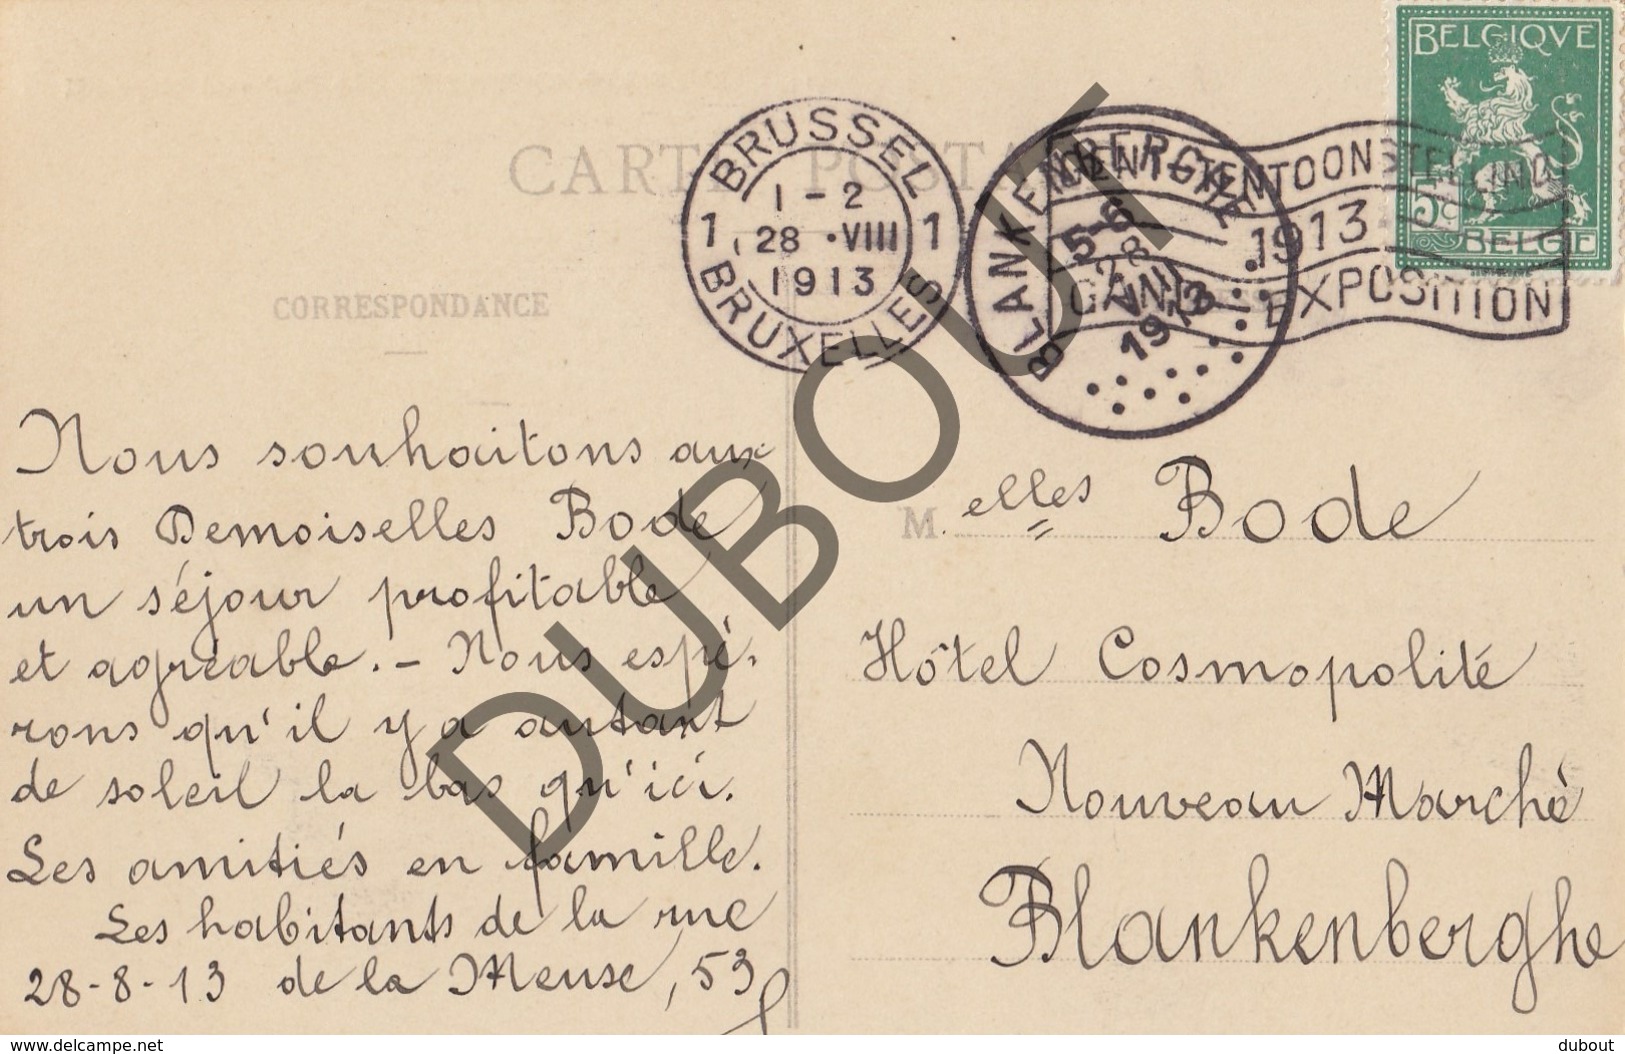 BELGIQVE
5c
BELGIE
CARTE POSTALE
BRUSSEL
1 1 - 2 1
28 • VIII
1913
BRUXELLES
BLANKENBERGHE
5-6
28
VIII
1913
GENT-TENTOONSTELLING
1913
GAND EXPOSITION
CORRESPONDANCE
Nous souhaitons aux
trois Demoiselles Bode
un séjour profitable
et agréable. - Nous espé-
rons qu'il y a autant
de soleil la bas qu'ici.
Les amitiés en famille.
Les habitants de la rue
28-8-13 de la Meuse, 53
M.elles Bode
Hôtel Cosmopolité
Nouveau Marché
Blankenberghe
DUBOUT
www.delcampe.net
dubout